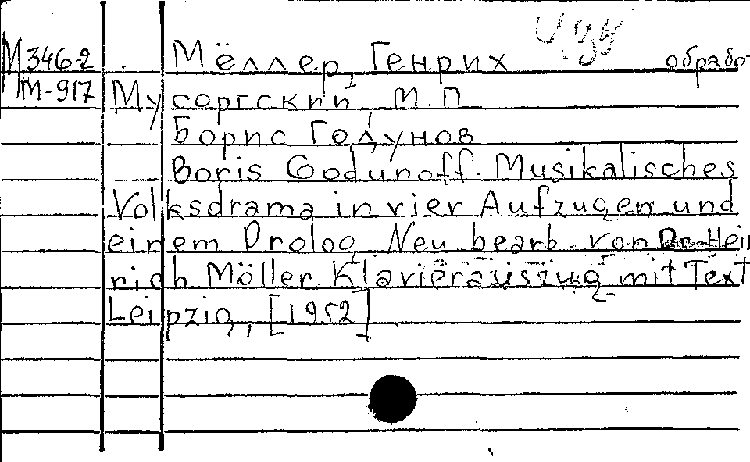 М3462 Мёллер, Генрих обрабо
М-917 Мусоргский, М.П.
Борис Годунов
Boris Godunoff. Musikalisches
Volksdrama in vier Aufzugen und
einem Prolog. Neu bearb. von Dr. Hein
rich Möller Klavierauszug mit Text
Leipzig, [1952]